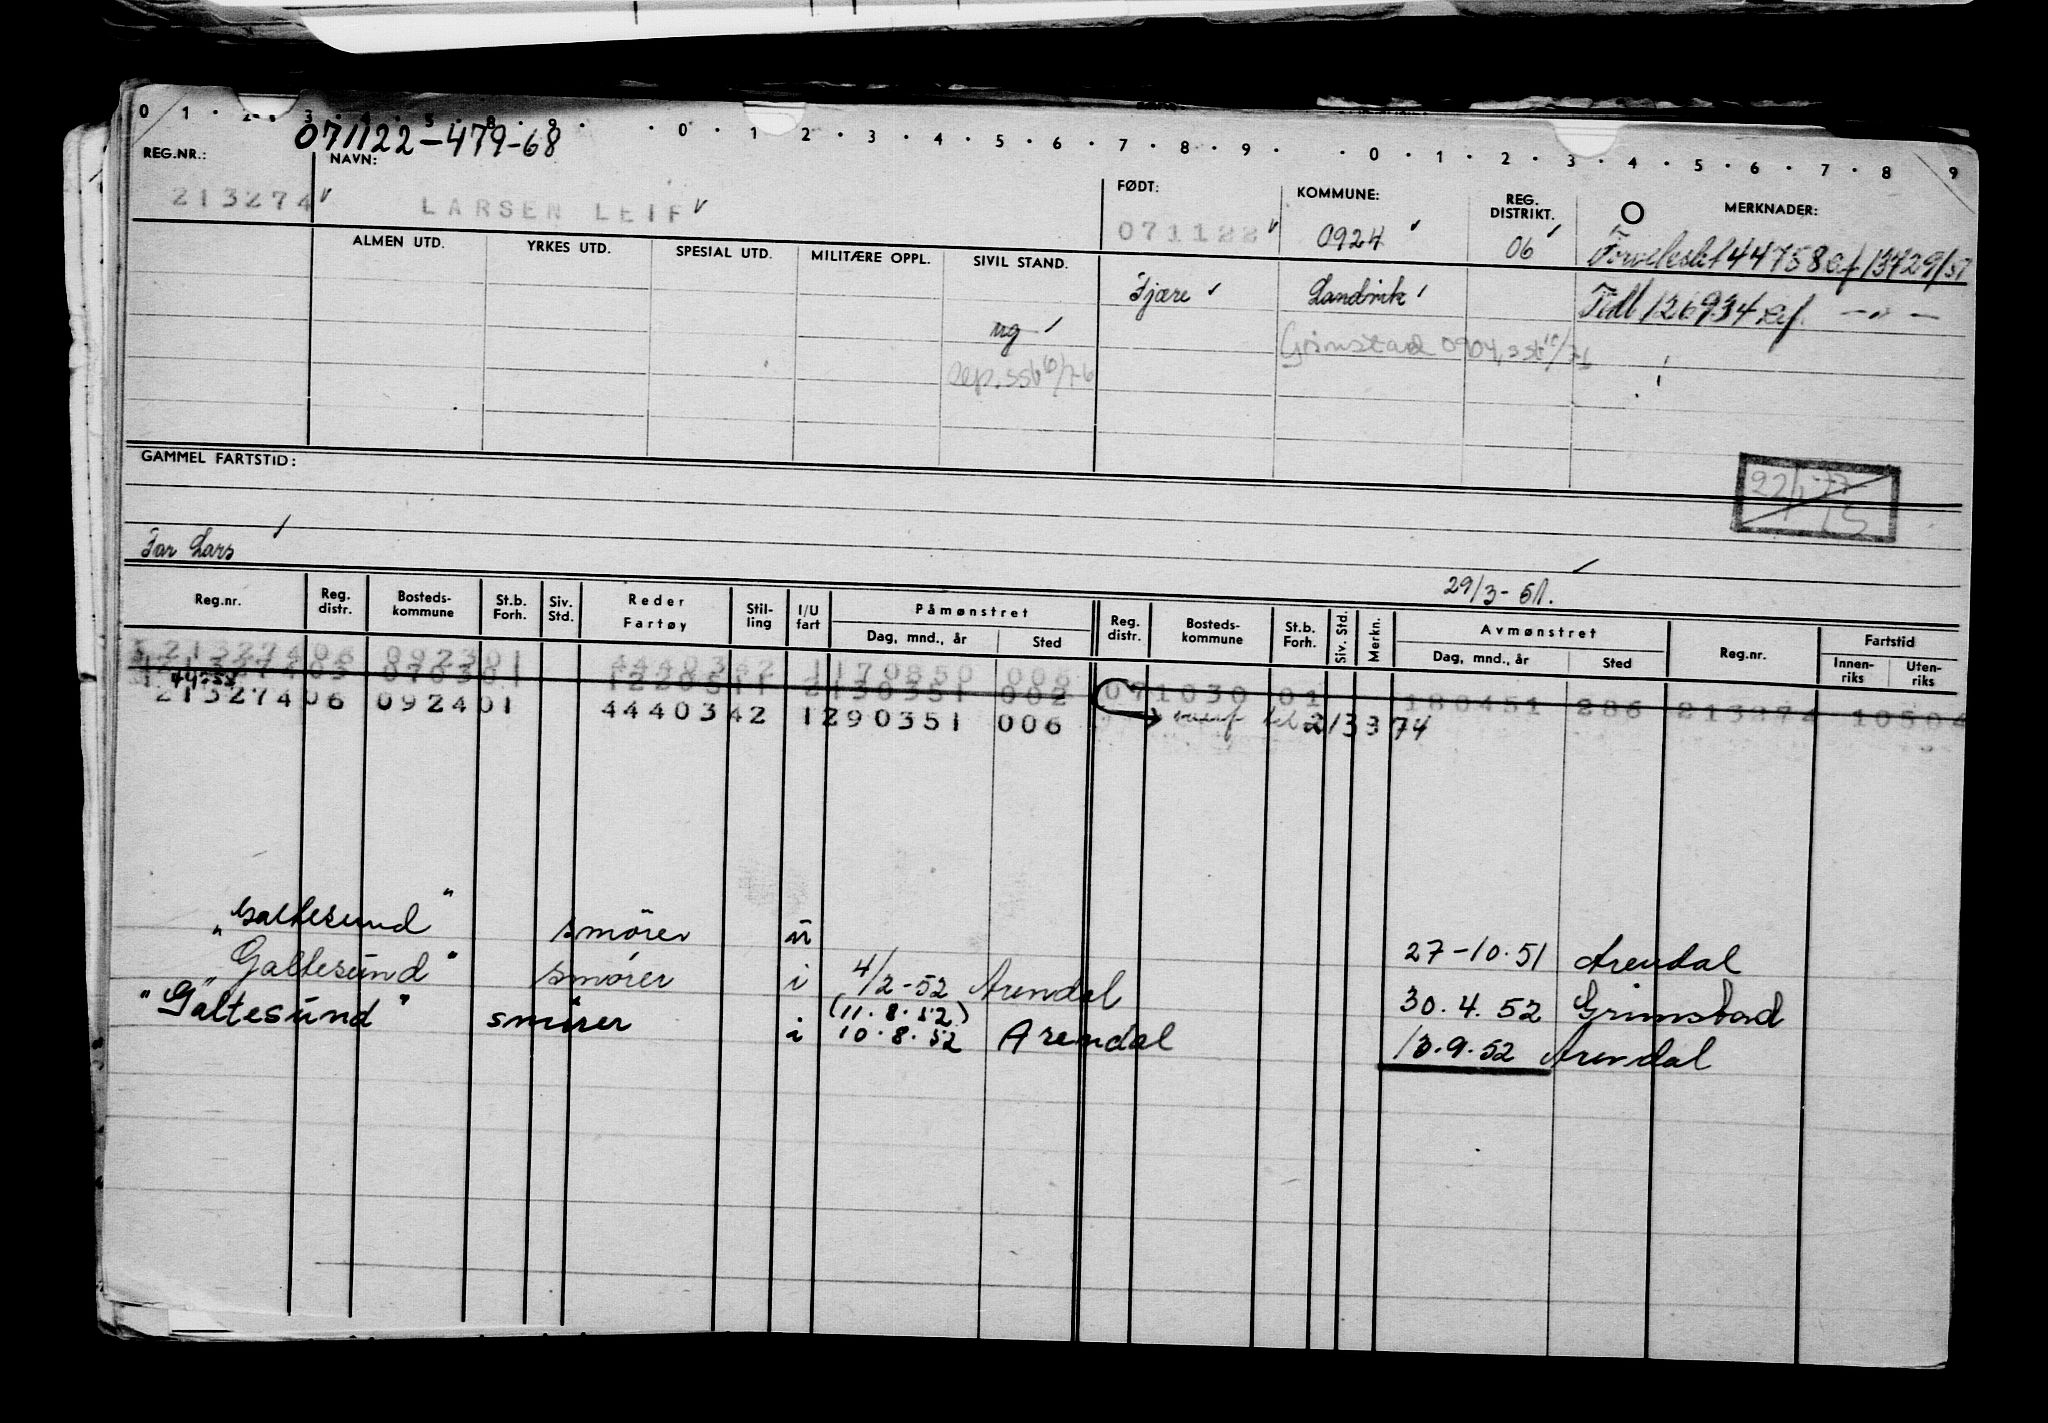 0 · 1 · 2 · 3 · 4 · 5 · 8 · 9 · · 0 · 1 · 2 · 3 · 4 · 5 · 6 · 7 · 8 · 9 · · 0 · 1 · 2 · 3 · 4 · 5 · 6 · 7 · 8 9
071122-479-68
REG.NR.: NAVN: FØDT: KOMMUNE: REG. DISTRIKT. MERKNADER:
213274 LARSEN LEIF 071122 0924 06
ALMEN UTD. YRKES UTD. SPESIAL UTD. MILITÆRE OPPL. SIVIL STAND.
Fjære Landvik
ug
Grimstad 0904
sep. ssb 10/76
Tidl 126934
GAMMEL FARTSTID:
Far Lars
29/3-61.
Reg.nr. Reg. distr. Bosteds-kommune St.b. Forh. Siv. Std. Reder Fartøy Stil-ling I/U fart Påmønstret Reg. distr. Bosteds-kommune St.b. Forh. Siv. Std. Merkn. Avmønstret Reg.nr. Fartstid
Dag, mnd., år Sted Dag, mnd., år Sted Innen-riks Uten-riks
213274 06 0923 01 4440342 1 170850 006
071030 01 180451 286 213274 10504
213274 06 0924 01 4440342 1 290351 006 213374
"Galtesund" smører 27-10.51 Arendal
"Galtesund" smører i 4/2-52 Arendal 30.4.52 Grimstad
(11.8.52)
"Galtesund" smører i 10.8.52 Arendal 13.9.52 Arendal